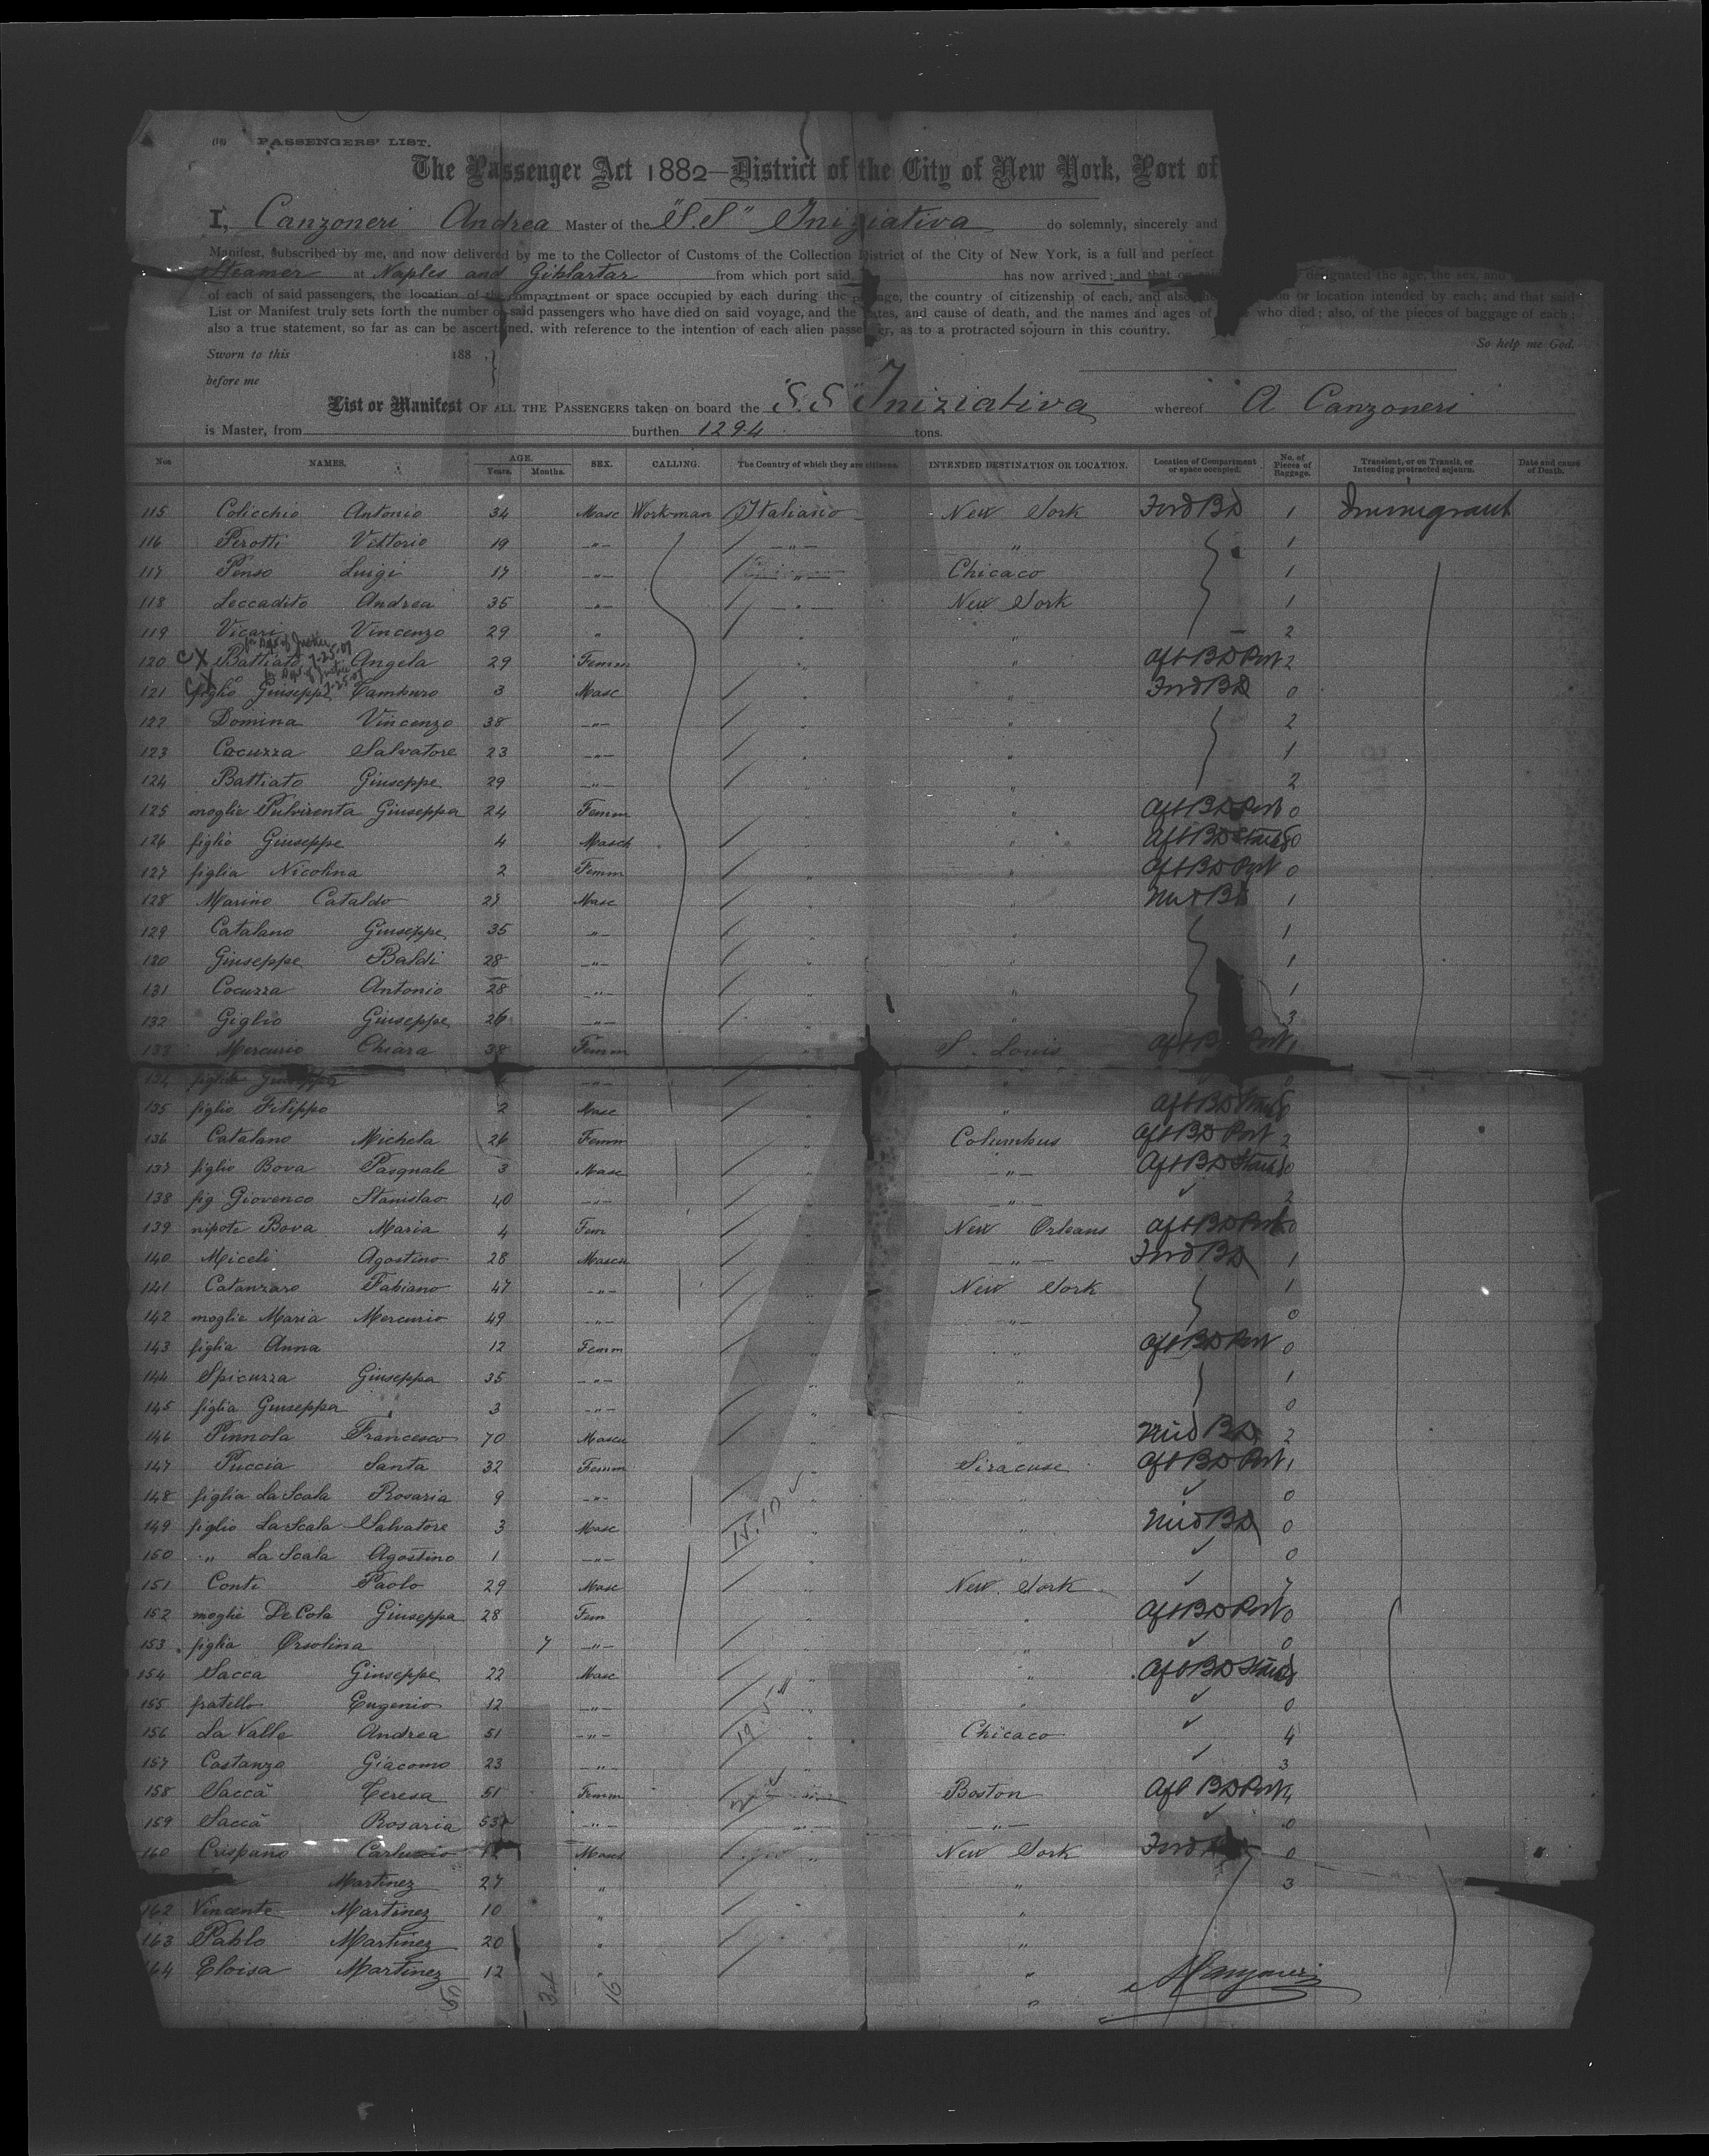 PASSENGERS' LIST.
The Passenger Act 1882—District of the City of New York, Port of
I, Canzoneri Andrea Master of the "S.S" Iniziativa do solemnly, sincerely and
Manifest, subscribed by me, and now delivered by me to the Collector of Customs of the Collection District of the City of New York, is a full and perfect
Steamer at Naples and Giblartar from which port said has now arrived; and that on designated the age, the sex, and
of each of said passengers, the location of the compartment or space occupied by each during the passage, the country of citizenship of each, and also the or location intended by each; and that said
List or Manifest truly sets forth the number of said passengers who have died on said voyage, and the dates, and cause of death, and the names and ages of who died; also, of the pieces of baggage of each;
also a true statement, so far as can be ascertained, with reference to the intention of each alien passenger, as to a protracted sojourn in this country.
So help me God.
Sworn to this 188
before me
List or Manifest OF ALL THE PASSENGERS taken on board the S.S Iniziativa whereof A Canzoneri
is Master, from burthen 1294 tons.
Nos NAMES. AGE. Years. Months. SEX. CALLING. The Country of which they are citizens. INTENDED DESTINATION OR LOCATION. Location of Compartment or space occupied. No. of Pieces of Baggage. Transient, or on Transit, or Intending protracted sojourn. Date and cause of Death.
115 Colicchio Antonio 34 Masc Workman Italiano New York Fwd BD 1 Immigrant
116 Perotti Vittorio 19 -"- -"- " 1
117 Penso Luigi 17 -"- " Chicaco 1
118 Leccadito Andrea 35 " " New York 1
119 Vicari Vincenzo 29 " " 2
120 CX Battiato Angela 29 Femm " " Aft BD Port 2
121 figlio Giuseppe Tamburo 3 Masc " " Fwd BD 0
122 Domina Vincenzo 38 -"- " 2
123 Cocuzza Salvatore 23 -"- " " 1
124 Battiato Giuseppe 29 -"- " " 2
125 moglie Pulvirenta Giuseppa 24 Femm " Aft BD Port 0
126 figlio Giuseppe 4 Masch " " Aft BD Starb 0
127 figlia Nicolina 2 Femm " " Aft BD Port 0
128 Marino Cataldo 27 Masc " " Mid BD 1
129 Catalano Giuseppe 35 -"- " " 1
130 Giuseppe Baldi 28 -"- " " 1
131 Cocuzza Antonio 28 -"- " " 1
132 Giglio Giuseppe 26 -"- " 3
133 Mercurio Chiara 38 Femm " S. Louis Aft B Port 1
134 figlia Giuseppa -"- " 0
135 figlio Filippo 2 Masc " " Aft BD 0
136 Catalano Michela 26 Femm " Columbus Aft BD Port 2
137 figlio Bova Pasquale 3 Masc " -"- Aft BD Starb 0
138 fig Giovenco Stanislao 40 -"- " -"- ✓ 2
139 nipote Bova Maria 4 Fem " New Orleans Aft BD Port 0
140 Miceli Agostino 28 Mascu " -"- Fwd BD 1
141 Catanzaro Fabiano 47 -"- " New York 1
142 moglie Maria Mercurio 49 -"- " -"- 0
143 figlia Anna 12 Femm " " Aft BD Port 0
144 Spicuzza Giuseppa 35 -"- " " 1
145 figlia Giuseppa 3 -"- " " 0
146 Pinnola Francesco 70 Mascu " " Mid BD 2
147 Puccia Santa 32 Femm " Siracuse Aft BD Port 1
148 figlia La Scala Rosaria 9 -"- " " ✓ 0
149 figlio La Scala Salvatore 3 Masc " " Mid BD 0
150 " La Scala Agostino 1 -"- " " ✓ 0
151 Conti Paolo 29 Masc " New York ✓ 7
152 moglie De Cola Giuseppa 28 Fem " " Aft BD Port 0
153 figlia Orsolina 7 -"- " " ✓ 0
154 Sacca Giuseppe 22 Masc " " Aft BD Starb
155 fratello Eugenio 12 -"- " " ✓ 0
156 La Valle Andrea 51 -"- " Chicaco ✓ 4
157 Costanzo Giacomo 23 -"- " ✓ 3
158 Saccà Teresa 51 Femm " Boston Aft BD Port 4
159 Saccà Rosaria 53 -"- " -"- ✓ 0
160 Crispano Carluccio Masc " New York Fwd 0
Martinez 27 " " 3
162 Vincente Martinez 10 " "
163 Pablo Martinez 20 " "
164 Eloisa Martinez 12 " "
"